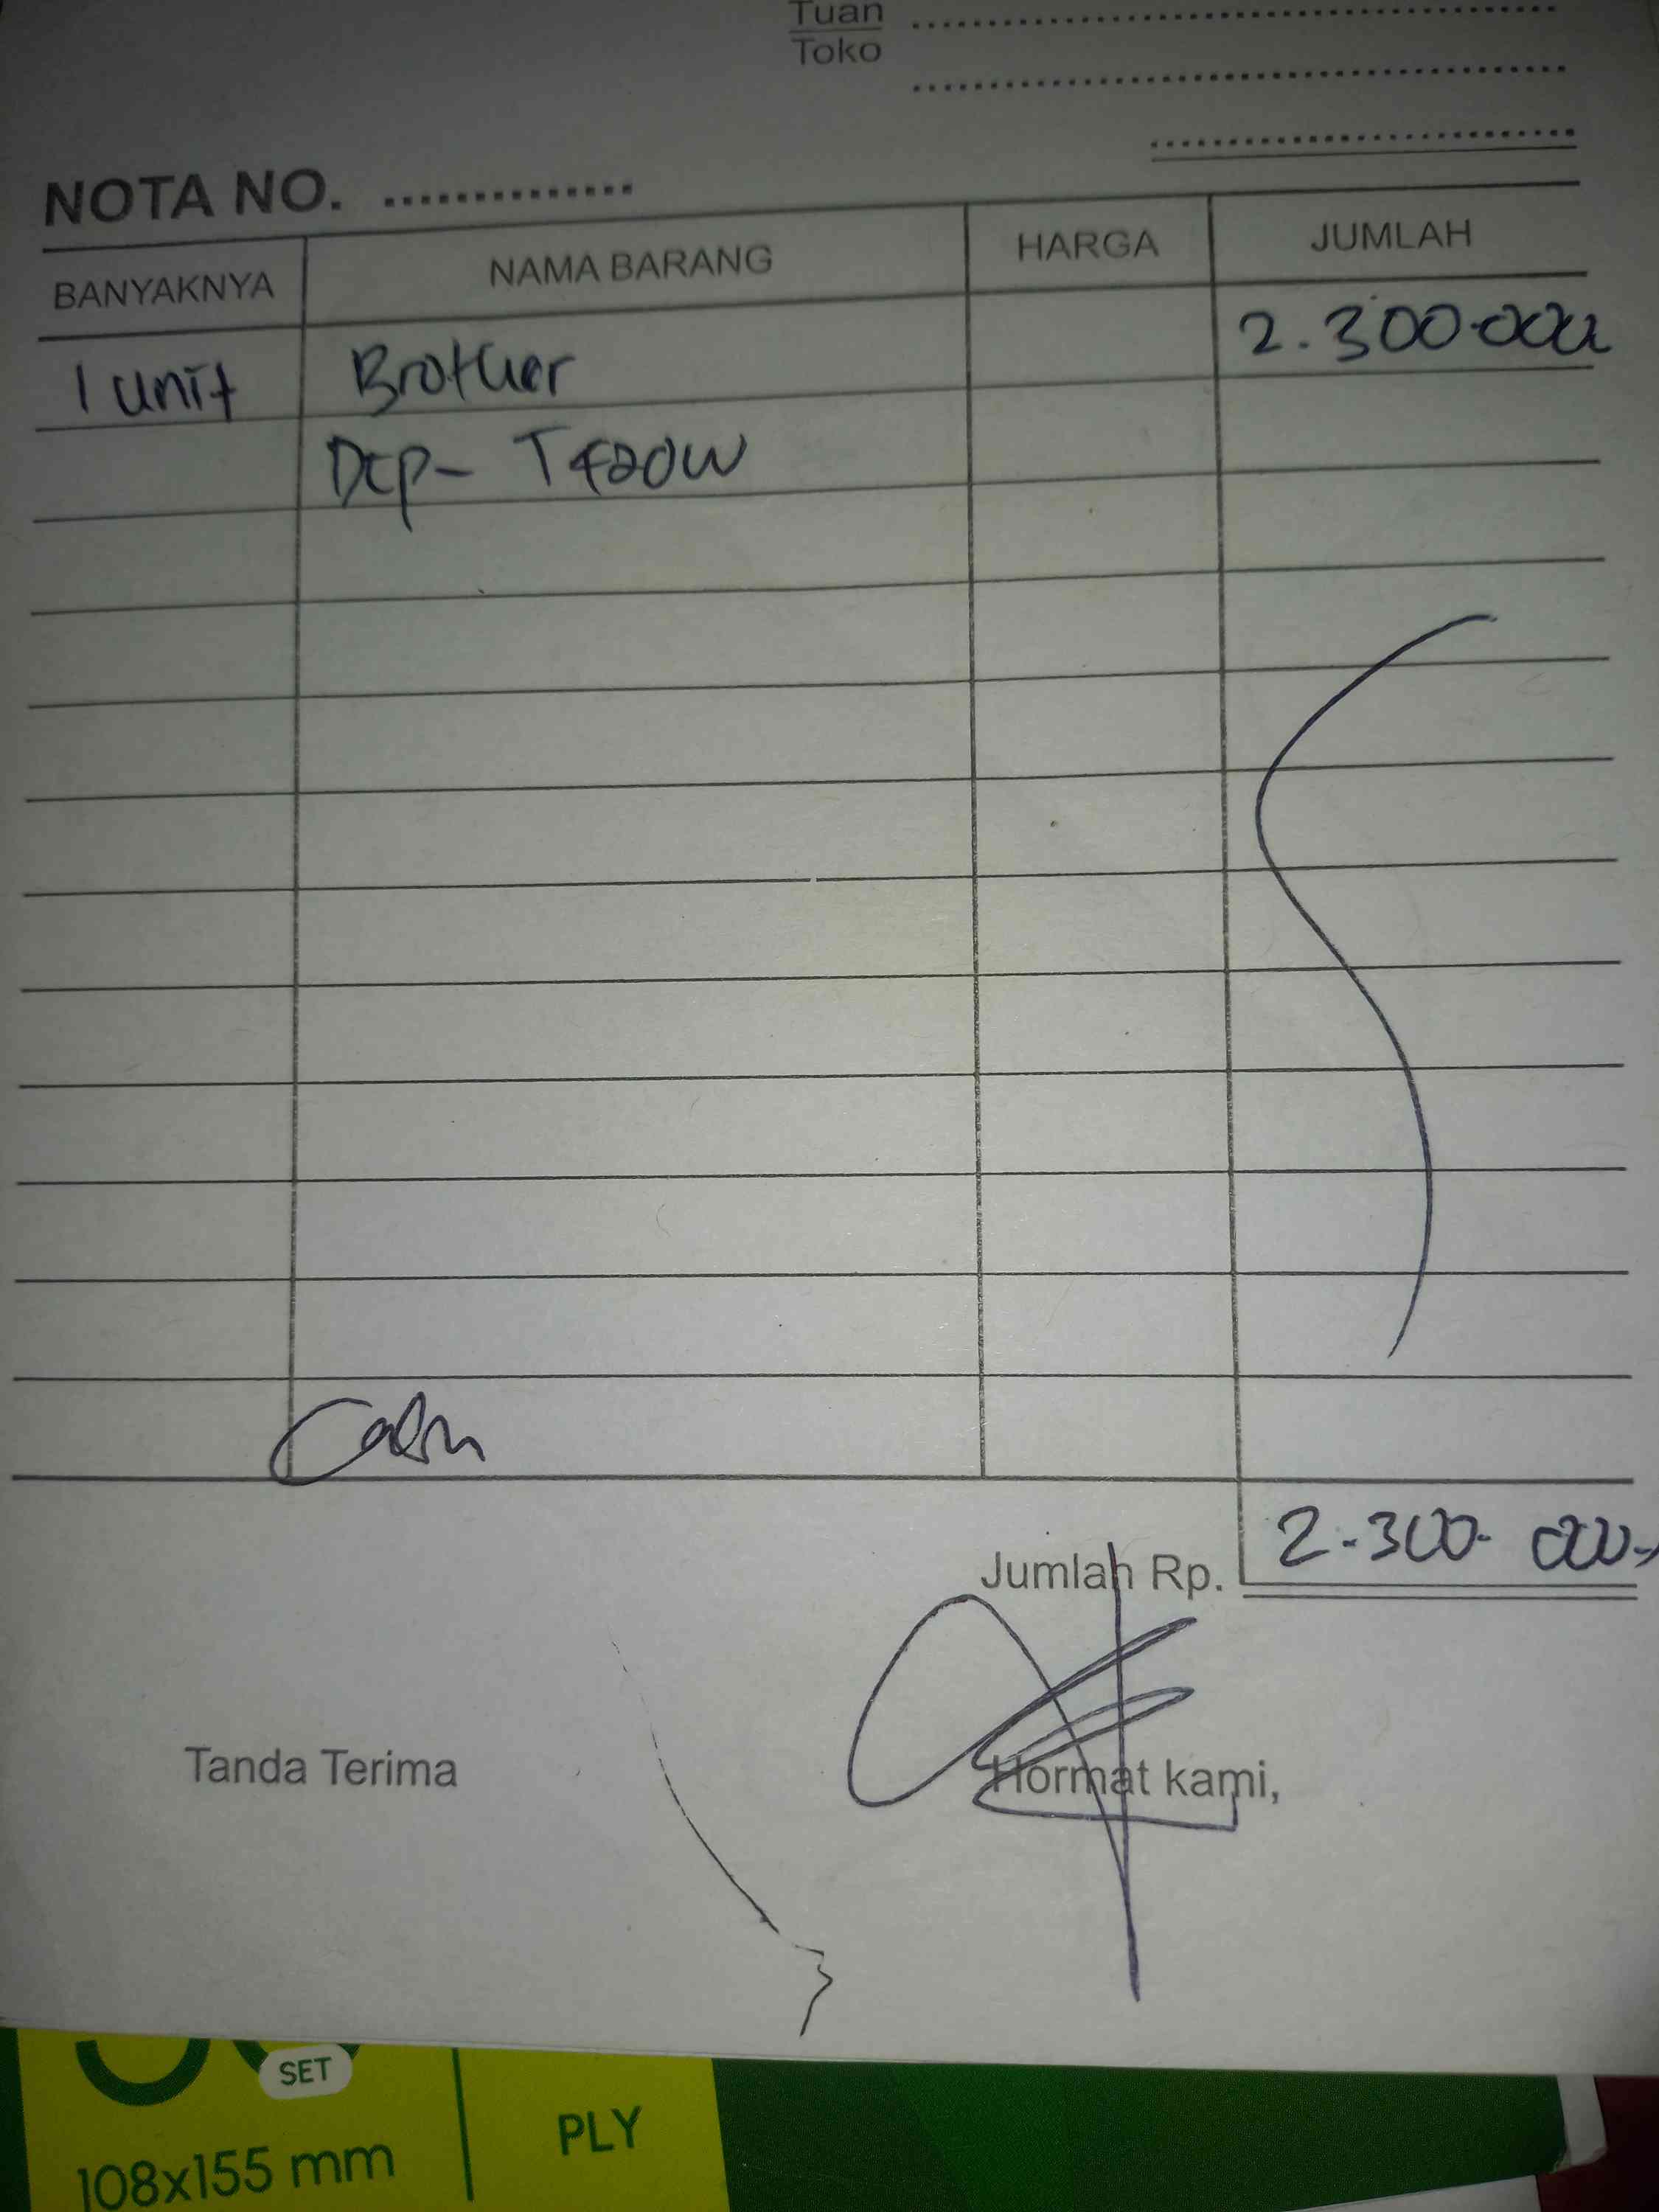 Tuan
Toko
NOTA NO. ..............
BANYAKNYA NAMA BARANG HARGA JUMLAH
1 unit Brother 2.300.000
Dcp- T420W
Cash
Jumlah Rp. 2.300.000,-
Tanda Terima Hormat kami,
SET
108x155 mm PLY